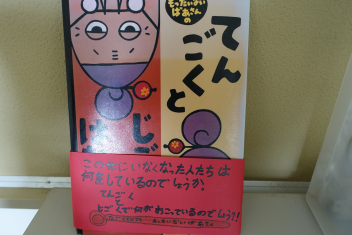 もったいない
ばあさんの
てん
ごくと
じご
この世にいなくなった人たちは
何をしているのでしょうか。
てんごく
と
じごくで何がおこっているのでしょう！